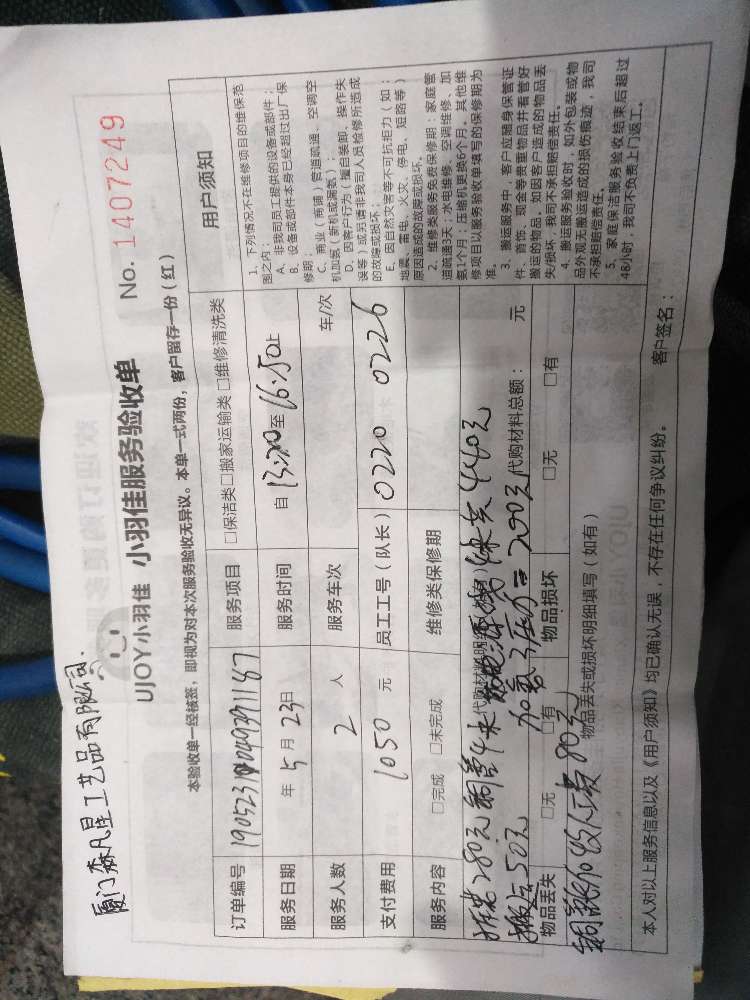 厦门森凡星工艺品有限公司.
UJOY小羽佳 小羽佳服务验收单 No. 1407249
本验收单一经核签，即视为对本次服务验收无异议。本单一式两份，客户留存一份（红）
订单编号
服务项目 □保洁类□搬家运输类 □维修清洗类
服务日期 年 5 月 23 日 服务时间 自 13:20 至 16:50 止
服务人数 2 人 服务车次 车/次
支付费用 1050 元 员工工号（队长） 0220 0226
服务内容 □完成 □未完成 维修类保修期
280元 铜管4米 440元
代购材料明细
搬运50元 加氨 =200元 代购材料总额： 元
物品丢失 □无 □有 物品损坏 □无 □有
物品丢失或损坏明细填写（如有）
80元
用户须知
1、下列情况不在维修项目的维保范
围之内：
A、非我司员工提供的设备或部件；
B、设备或部件本身已经超过出厂保
修期；
C、商业（商铺）管道疏通、空调空
机加氨（新机或漏氨）；
D、因客户行为（擅自装卸、操作失
误等）或另请非我司人员检修所造成
的故障或损坏；
E、因自然灾害等不可抗拒力（如：
地震、雷电、火灾、停电、短路等）
原因造成的故障或损坏。
2、维修类服务免费保修期：家庭管
道疏通3天；水电维修、空调维修、加
氨1个月；压缩机更换6个月。其他维
修项目以服务验收单填写的保修期为
准。
3、搬运服务中，客户应随身保管证
件、首饰、现金等贵重物品并看管好
搬运的物品，如因客户造成的物品丢
失/损坏，我司不承担赔偿责任。
4、搬运服务验收时，如外包装或物
品外观无搬运造成的损伤痕迹，我司
不承担赔偿责任。
5、家庭保洁服务验收结束后超过
48小时，我司不负责上门返工。
本人对以上服务信息以及《用户须知》均已确认无误，不存在任何争议纠纷。 客户签名：